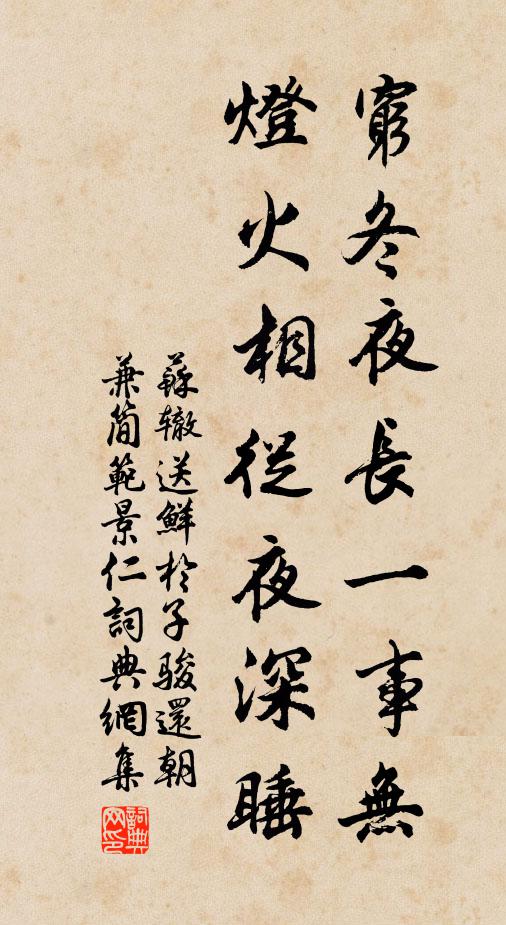 窮冬夜長一事無
燈火相從夜深睡
蘇轍送鮮於子駿還朝
兼簡範景仁詞典網集
詞典
网印